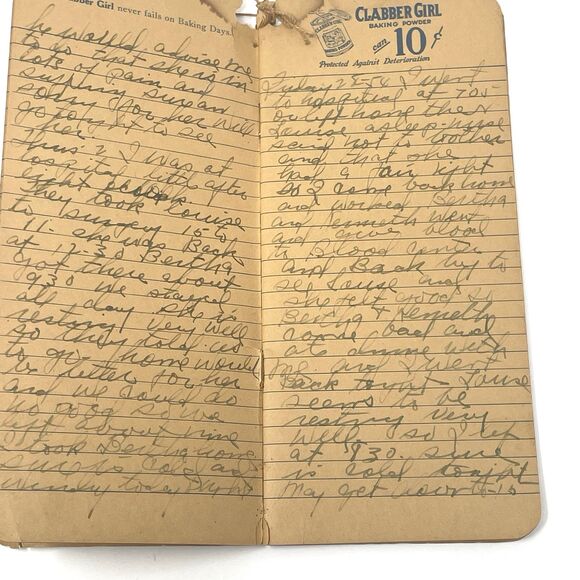 Clabber Girl never fails on Baking Days.
he would advise me
to so that she is in
lots of Pain and
suffering sure am
sorry for her will
go tonight to see
her
Thur 2 I was at
hospital little after
eight oclock
They took Louise
to surgery 15 to
11. she was Back
at 12-30 Bertha
got there about
930 we stayed
all day she is
resting very well
so they told us
to go home would
be better for her
and we could do
no good so we
left about nine
took Bertha home
sure is cold and
windy today & night
CLABBER GIRL
BAKING POWDER
can 10¢
Protected Against Deterioration
Friday 28-56 I went
to hospital at 705
or left home then
Louise asleep nurse
said not to bother
and that she
had a fair night
so I come back home
and worked Bertha
and Kenneth went
and give blood
to Blood center
and Back by to
see Louise and
she felt good so
Bertha & Kenneth
come back and
ate dinner with
me and I went
Back tonight Louise
seems to be
resting very
well so I left
at 930. sure
is cold tonight
May get down to 10